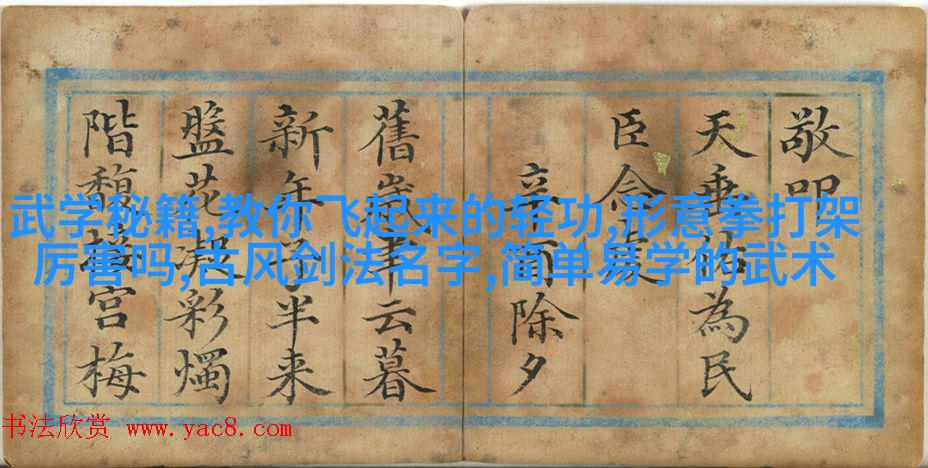 敬
天垂佑為民
臣
除夕
舊歲聿云暮
新年子半来
盤花凝彩燭
階馥宮梅
武学秘籍,教你飞起来的轻功,形意拳打架
厉害吗,古风剑法名字,简单易学的武术
书法欣赏 www.yac8.com